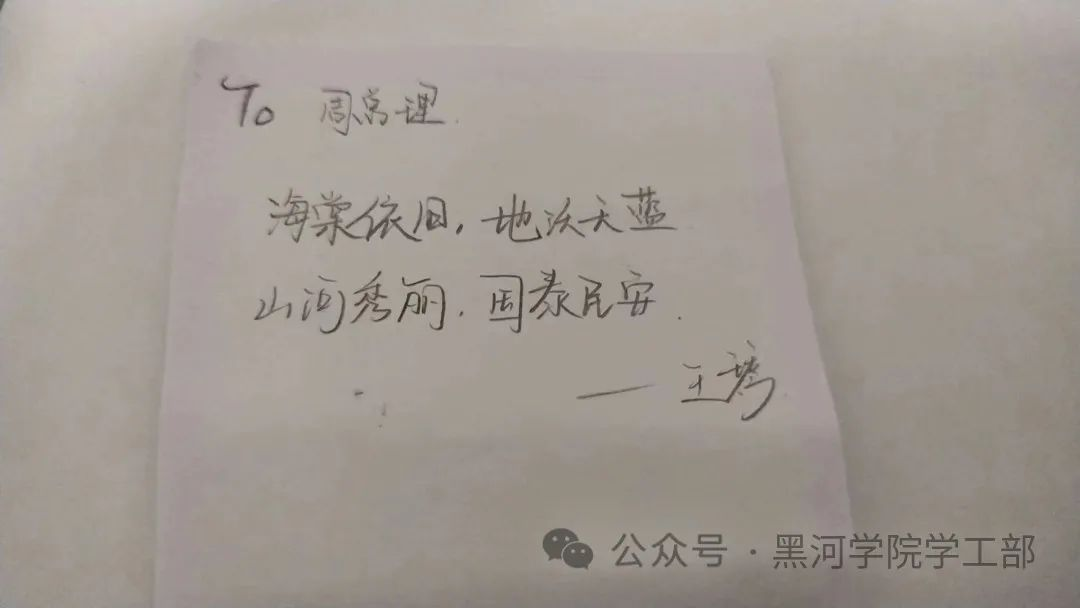 To 周总理.
海棠依旧,地沃天蓝
山河秀丽.国泰民安.
——王
公众号·黑河学院学工部